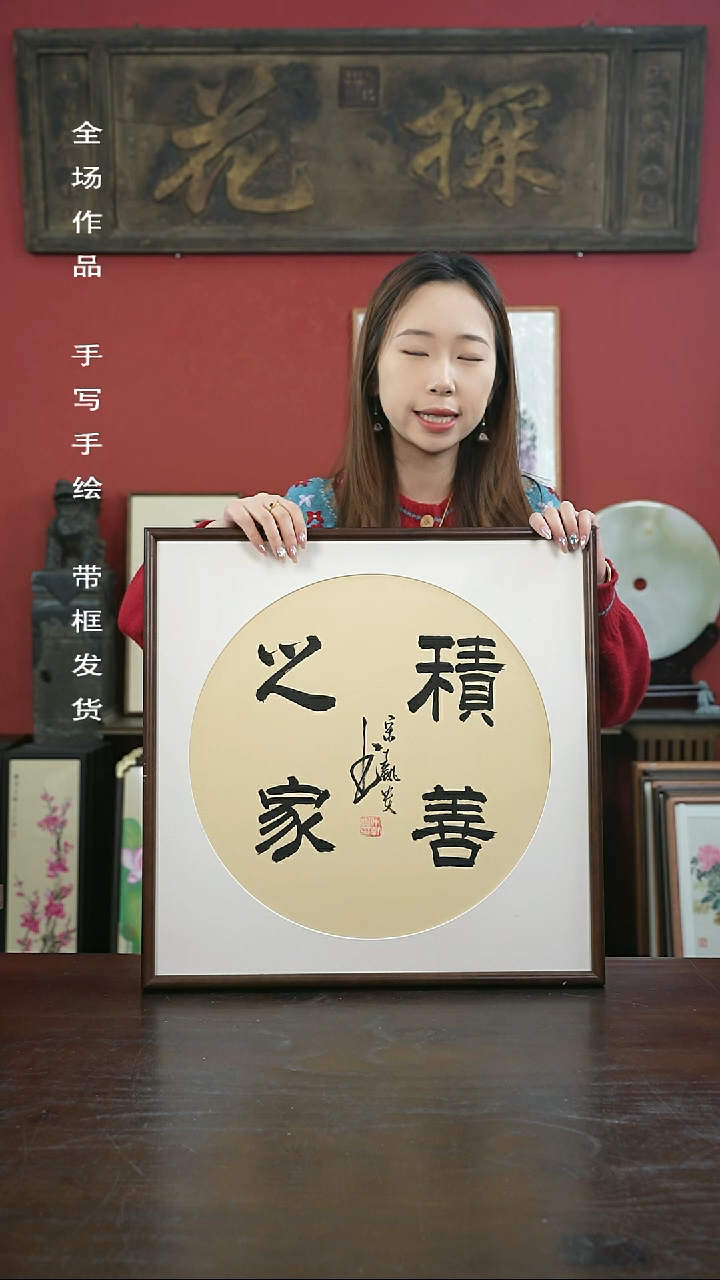 探花
全场作品 手写手绘 带框发货
積善
之家